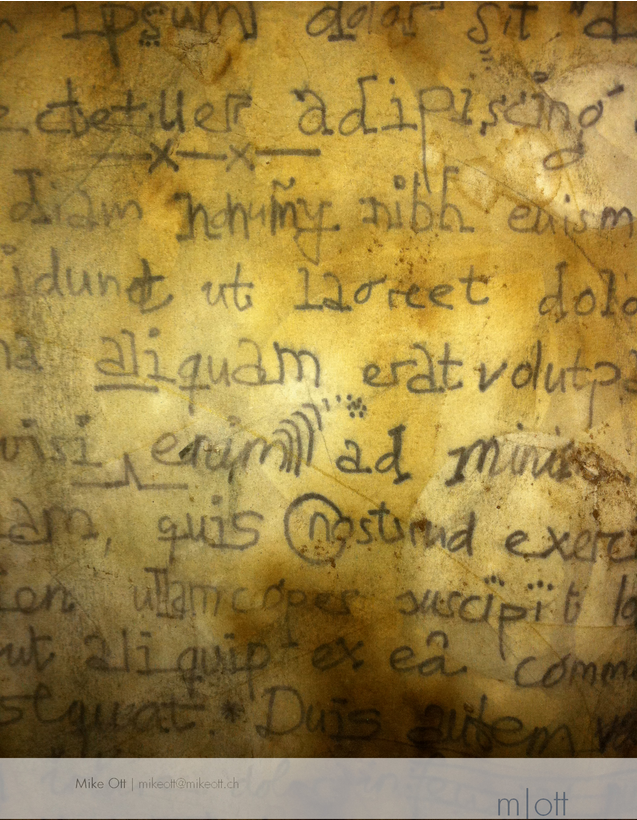 ipsum dolor sit
ctetuer adipiscing
diam nonumy nibh euism
idunt ut laoreet dolo
na aliquam erat volutpa
wisi enim ad minim
iam, quis nostrud exerci
ion ullamcorper suscipit lo
ut aliquip ex ea comm
sequat. * Duis autem ve
Mike Ott | mikeott@mikeott.ch
m|ott